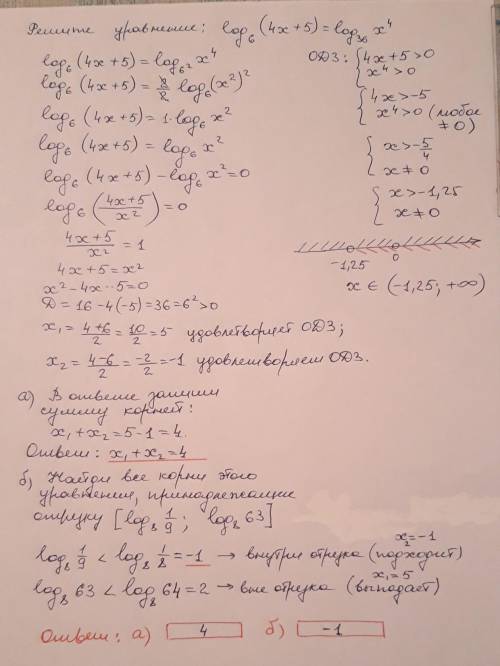 Решите уравнение: log₆(4x+5)=log₃₆x⁴
log₆(4x+5)=log₆²x⁴
log₆(4x+5)=2/2 log₆(x²)²
log₆(4x+5)=1·log₆x²
log₆(4x+5)=log₆x²
log₆(4x+5)-log₆x²=0
log₆((4x+5)/x²)=0
(4x+5)/x²=1
4x+5=x²
x²-4x-5=0
D=16-4(-5)=36=6²>0
x₁=(4+6)/2=10/2=5 удовлетворяет ОДЗ;
x₂=(4-6)/2=-2/2=-1 удовлетворяет ОДЗ.
ОДЗ: {4x+5>0
x⁴>0
{4x>-5
x⁴>0 (любое
≠0)
{x>-5/4
x≠0
{x>-1,25
x≠0
-1,25 0
x∈(-1,25; +∞)
а) В ответе запиши
сумму корней:
x₁+x₂=5-1=4.
Ответ: x₁+x₂=4
б) Найди все корни этого
уравнения, принадлежащие
отрезку [log₈ 1/9; log₈ 63]
x₂=-1
log₈ 1/9 < log₈ 1/8=-1 → внутри отрезка (подходит)
x₁=5
log₈ 63 < log₈ 64=2 → вне отрезка (выпадает)
Ответ: а) 4 б) -1